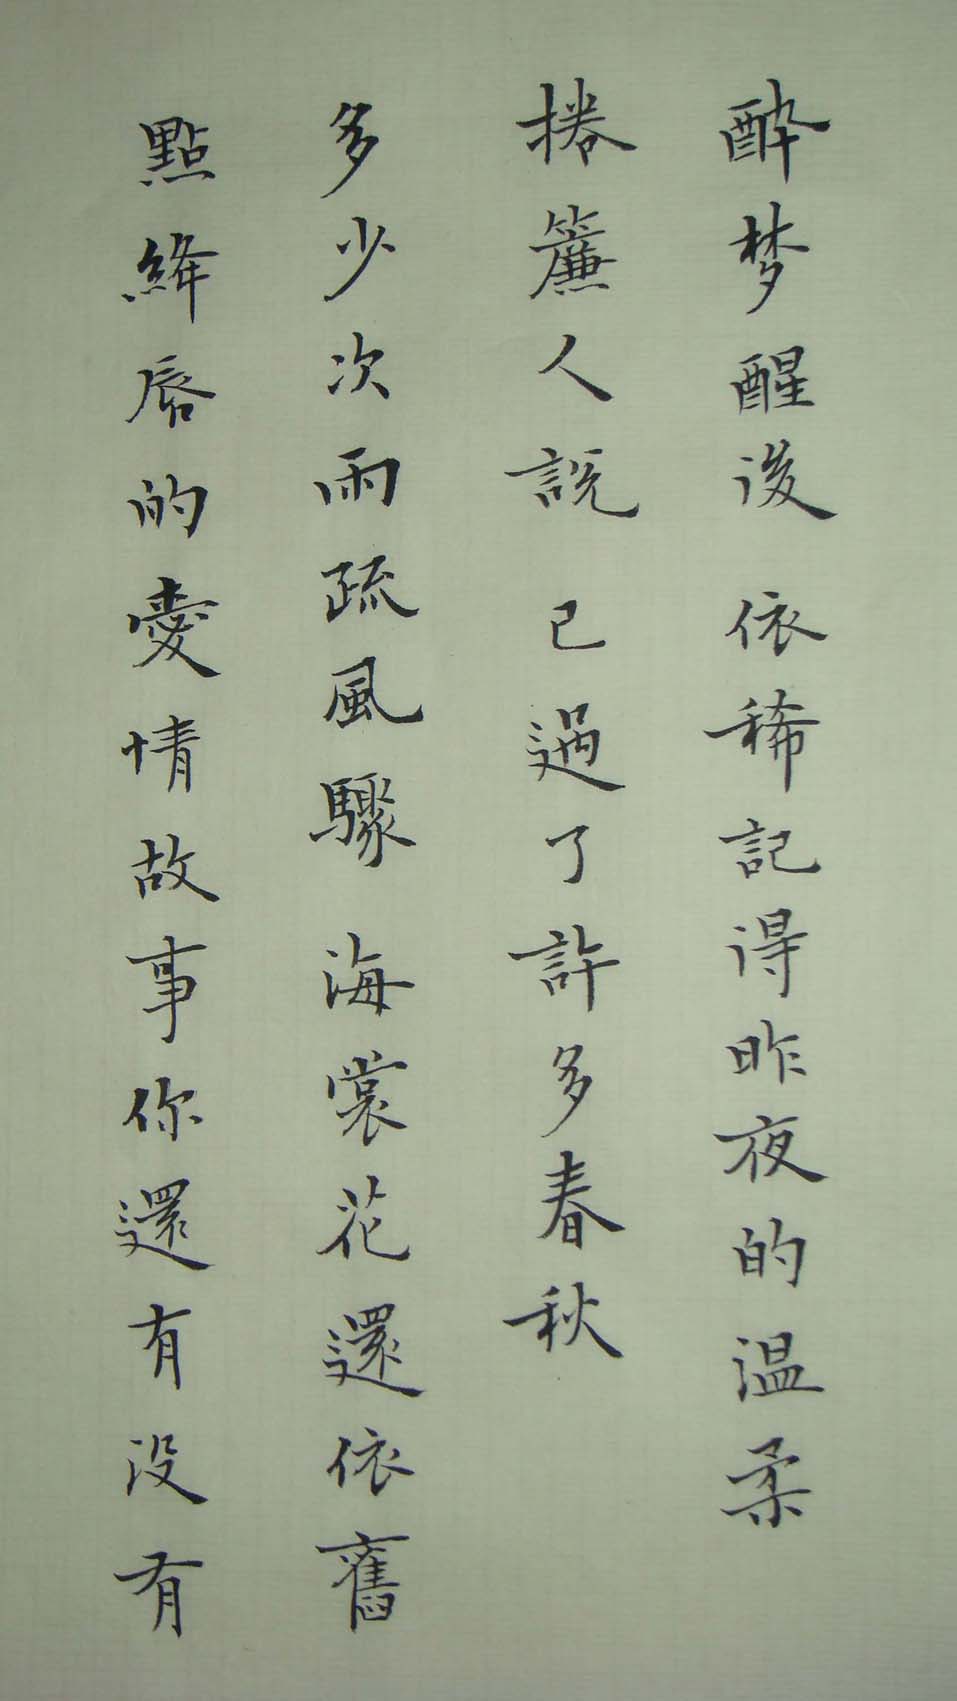 酔梦醒後 依稀記得昨夜的温柔
捲簾人說 已過了許多春秋
多少次雨疏風驟 海棠花還依舊
點絳唇的愛情故事你還有没有